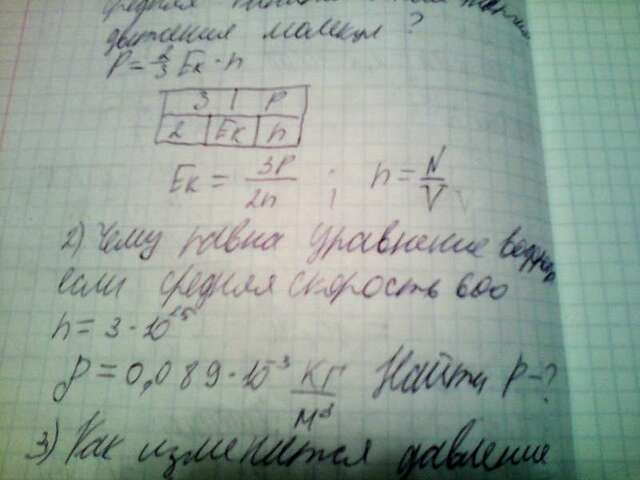 средняя
движения молекул ?
P = 2/3 Eк · n
3 1 P
2 Eк n
Eк = 3P/2n ; n = N/V
2) Чему равна уравнение
если средняя скорость 600
n = 3 · 10²⁵
ρ = 0,089 · 10⁻³ кг/м³ Найти P - ?
3) Как изменится давление